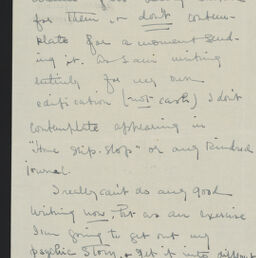 for them & don't contem-
plate for a moment send-
ing it. As I am writing
entirely for my own
edification (not cash) I don't
contemplate appearing in
"Home Slip-Slop" or any kindred
journal.
I really can't do any good
writing now, but as an exercise
I'm going to get out my
psychic story, & get it into different